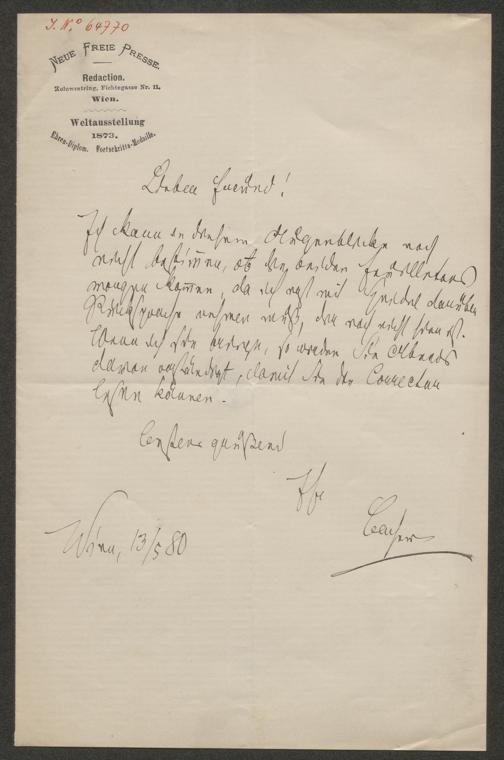 J. Nº 64770
NEUE FREIE PRESSE.
Redaction.
Kolowratring, Fichtegasse Nr. 11.
Wien.
Weltausstellung
1873.
Ehren-Diplom. Fortschritts-Medaille.
Lieber Freund!
Ich kann in diesem Augenblicke noch
nicht bestimmen, ob die beiden Feuilletons
morgen kommen, da ich erst mit darüber
Rücksprache nehmen muß, der noch nicht hier ist.
Wenn ja, so werden Sie Abends
davon verständigt, damit Sie die Correctur
lesen können.
Bestens grüßend
Ihr
Bacher
Wien, 13/5 80